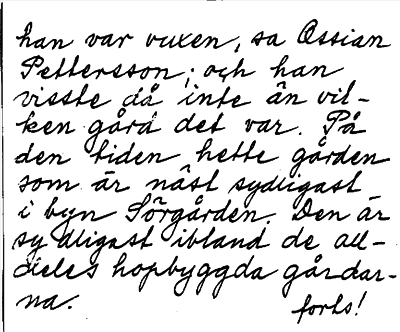 han var vuxen, sa Ossian
Pettersson; och han
visste då inte än vil-
ken gård det var. På
den tiden hette gården
som är näst sydligast
i byn Sörgården. Den är
sydligast ibland de all-
deles hopbyggda gårdar-
na. forts!